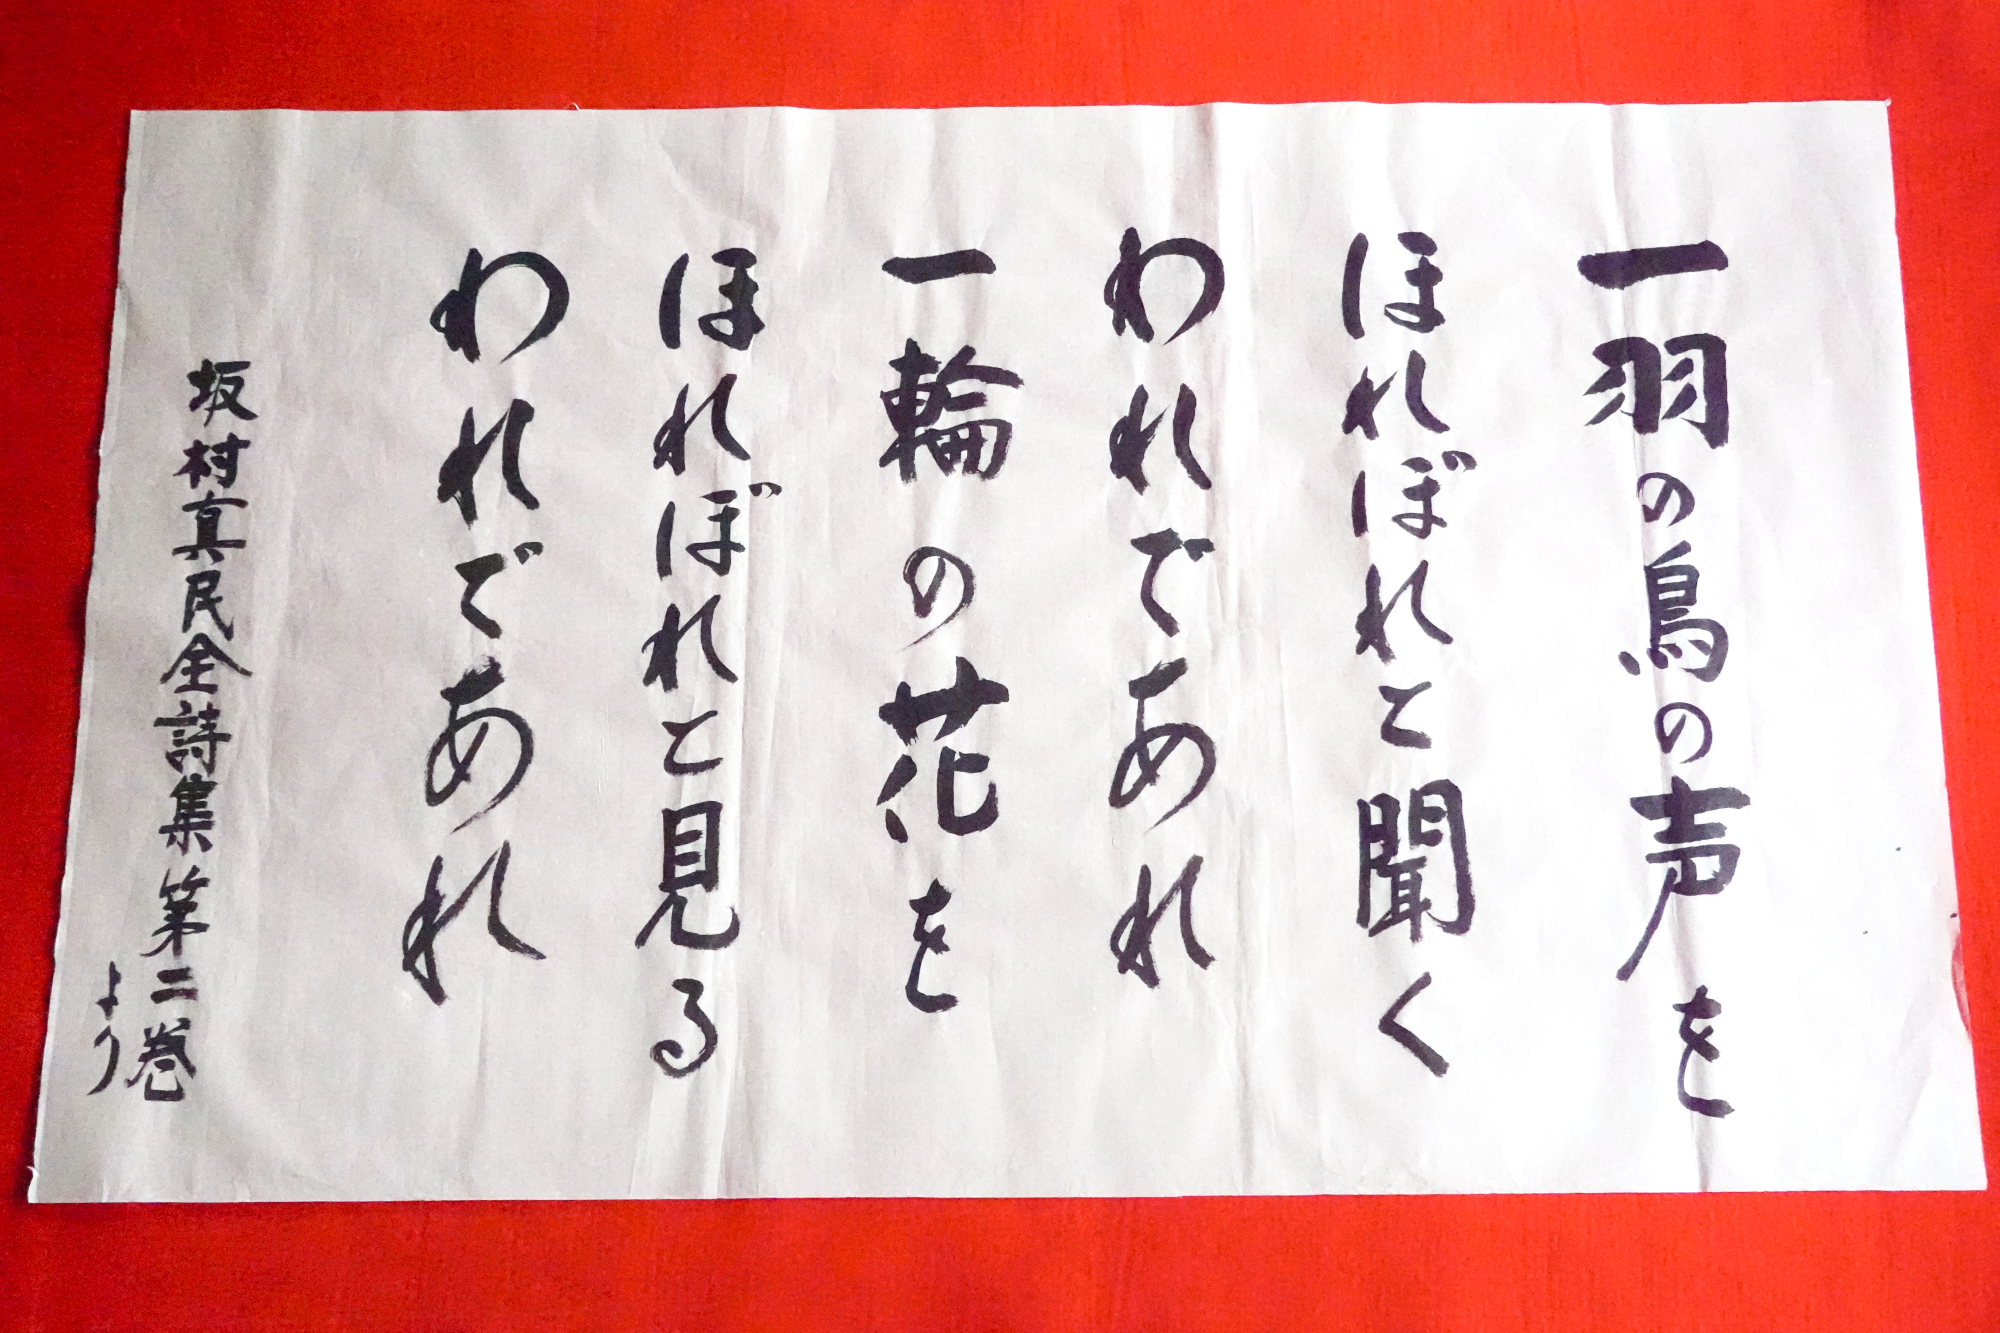 一羽の鳥の声を
ほれぼれと聞く
われであれ
一輪の花を
ほれぼれと見る
われであれ
坂村真民全詩集第二巻
より